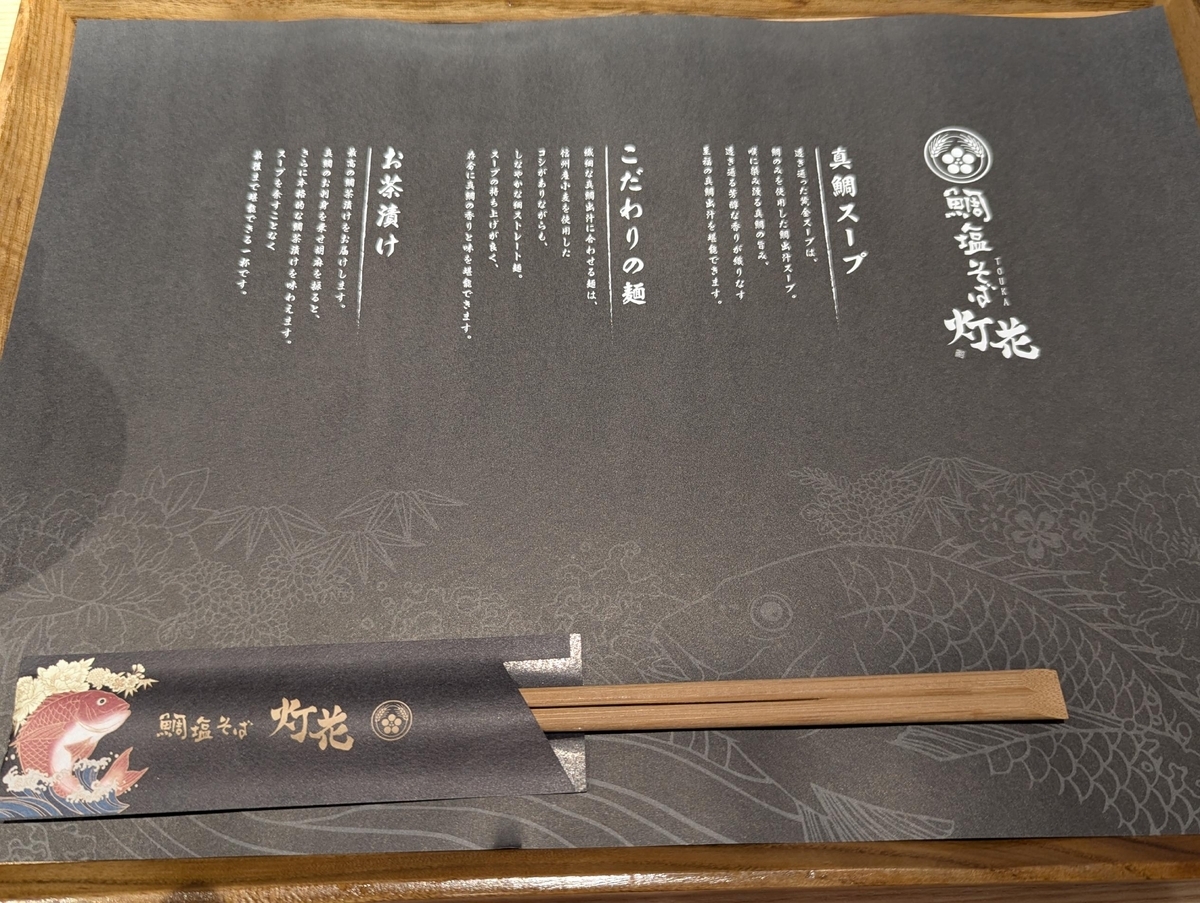 鯛塩そば
TOUKA
灯花
真鯛スープ
透き通った黄金スープは、
鯛のみを使用した鯛出汁スープ。
喉に染み渡る真鯛の旨み、
透き通る芳醇な香りが織りなす
至福の真鯛出汁を堪能できます。
こだわりの麺
繊細な真鯛出汁に合わせる麺は、
信州産小麦を使用した
コシがありながらも、
しなやかな細ストレート麺。
スープの持ち上げが良く、
存分に真鯛の香りと味を堪能できます。
お茶漬け
最高の鯛茶漬けをお届けします。
真鯛のお刺身を乗せ胡麻を振ると、
さらに本格的な鯛茶漬けを味わえます。
スープを余すことなく、
最後まで堪能できる一杯です。
鯛塩そば 灯花